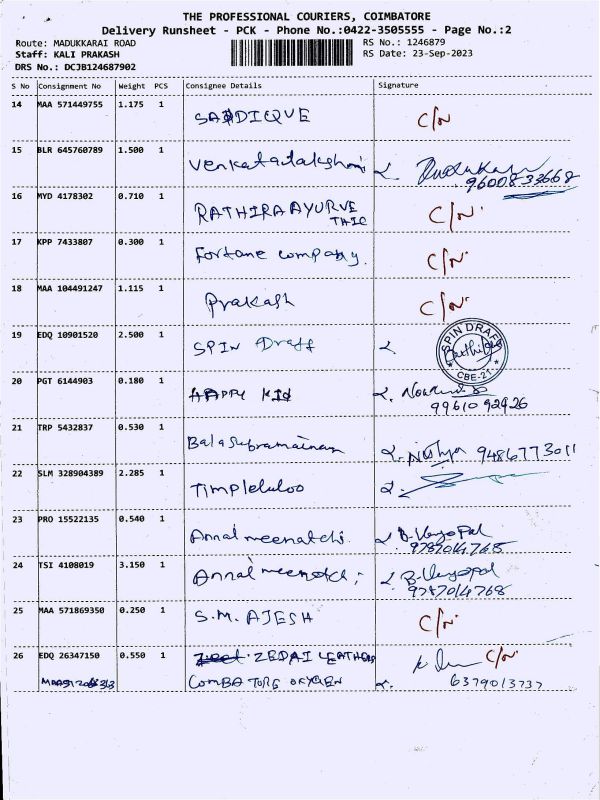 THE PROFESSIONAL COURIERS, COIMBATORE
Delivery Runsheet - PCK - Phone No.:0422-3505555 - Page No.:2
Route: MADUKKARAI ROAD RS No.: 1246879
Staff: KALI PRAKASH RS Date: 23-Sep-2023
DRS No.: DCJB124687902
S No Consignment No Weight PCS Consignee Details Signature
14 MAA 571449755 1.175 1 SADDIQUE C/N
15 BLR 645760789 1.500 1 Venkatalakshmi
9600833668
16 MYD 4178302 0.710 1 RATHIRA AYURVE C/N
THIC
17 KPP 7433807 0.300 1 Fortune company. C/N
18 MAA 104491247 1.115 1 Prakash C/N
19 EDQ 10901520 2.500 1 SPIN Draff SPIN DRAFT CBE-21
20 PGT 6144903 0.180 1 HAPPY KID
9961092926
21 TRP 5432837 0.530 1 Balasubramainam Nithya 9486773011
22 SLM 328904389 2.285 1 Timpleluloo
23 PRO 15522135 0.540 1 Annai meenatchi. B-Venugopal
9787014768
24 TSI 4108019 3.150 1 Annai meenatchi; B-Venugopal
9787014768
25 MAA 571869350 0.250 1 S.M. AJESH C/N
26 EDQ 26347150 0.550 1 ZEDAI LEATHERS C/N
COMBATORE OXYGEN 6379013737